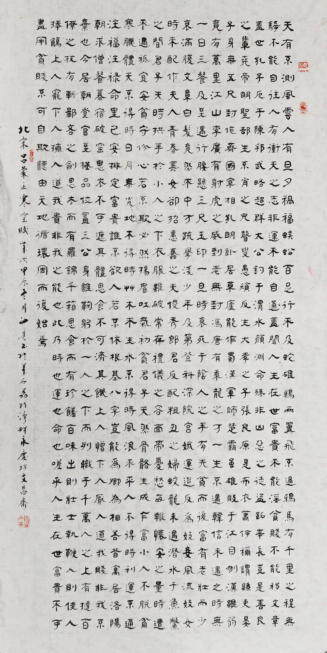 天有不測風雲人有旦夕禍福蜈蚣百足行不及蛇雄鷄兩翼飛不過鴉馬有千里之程無
騎不能自往人有衝天之志非運不能自通蓋聞人生在世富貴不能淫貧賤不能移文章
蓋世孔子厄于陳邦武略超群太公釣于渭水顏淵命短殊非凶惡之徒盜跖年長豈是善良
之輩堯帝明聖却生不肖之兒瞽叟愚頑反生大孝之子張良原是布衣蕭何稱謂縣吏晏
子身無五尺封作齊國宰相孔明卧居草廬能作蜀漢軍師楚霸雖雄敗于烏江自刎漢王雖弱
竟有萬里江山李廣有射虎之威到老無封馮唐有乘龍之才一生不遇韓信未遇之時無
一日三餐及至遇行腰懸三尺玉印一旦時衰死于陰人之手有先貧而後富有老壯而少
衰滿腹文章白髮竟然不中才疏學淺少年及第登科深院宮娥運退反為妓妾風流妓女
時來配作夫人青春美女却招愚蠢之夫俊秀郎君反配粗丑之婦蛟龍未遇潛水于魚鱉
之間君子失時拱手于小人之下衣服雖破常存禮儀之容面帶憂愁每抱懷安之量時遭
不遇只宜安貧守份心若不欺必然揚眉吐氣初貧君子天然骨骼生成乍富小人不脫貧
寒肌體天不得時日月無光地不得時草木不生水不得時風浪不平人不得時利運不通
注福注祿命里已安排定富貴誰不欲人若不依根基八字豈能為卿為相吾昔寓居洛陽
朝求僧餐暮宿破窑思衣不可遮其體思食不可濟其饑上人憎下人厭人道我賤非我不
棄也今居朝堂官至極品位置三公身雖鞠躬於一人之下而列職于千萬人之上有撻百
僚之杖有斬鄙吝之劍思衣而有羅錦千箱思食而有珍饈百味出則壯士執鞭入則佳人
捧觴上人寵下人擁人道我貴非我之能也此乃時也運也命也嗟乎人生在世富貴不可
盡用貧賤不可自欺聽由天地循環周而復始焉
北宋呂蒙正寒窑賦